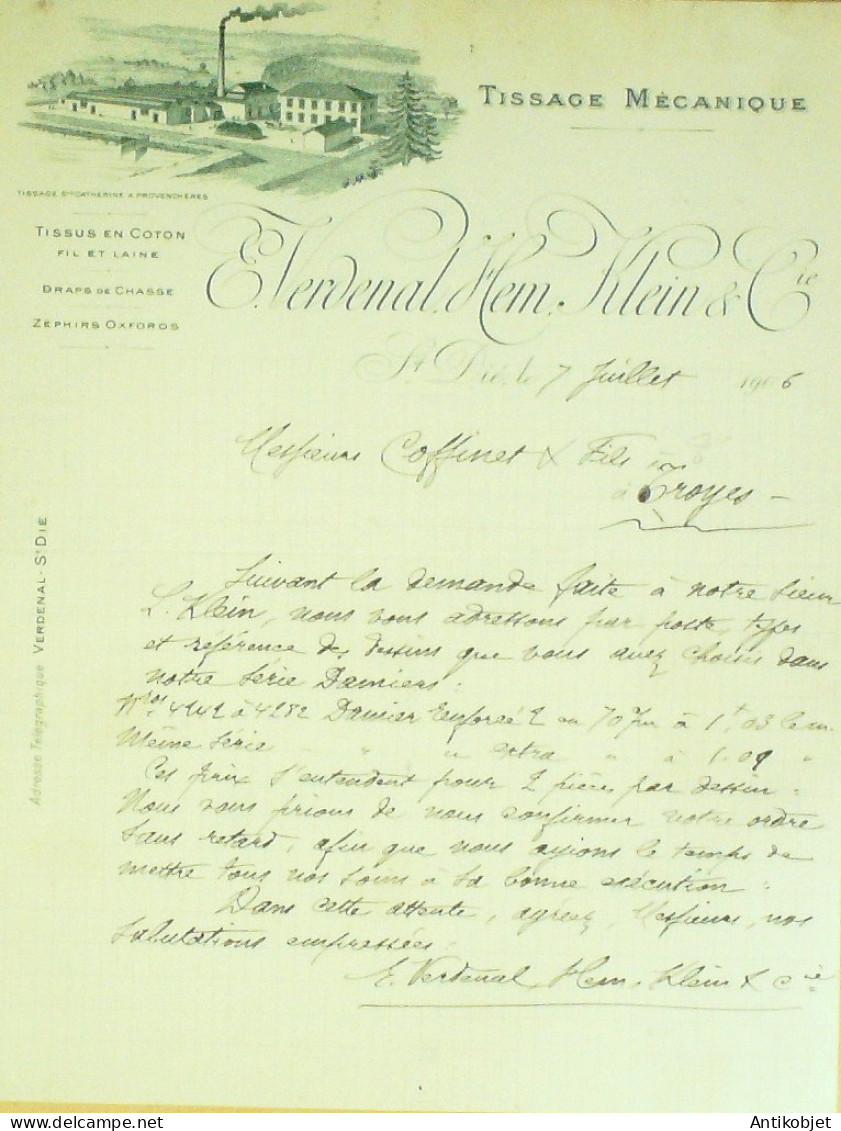 TISSAGE MÉCANIQUE
TISSAGE STE CATHERINE A PROVENCHÈRES
TISSUS EN COTON
FIL ET LAINE
DRAPS DE CHASSE
ZEPHIRS OXFORDS
E. Verdenal, Hem, Klein & Cie
St Dié, le 7 Juillet 1906
Messieurs Coffinet & Fils
à Troyes –
Adresse Télégraphique VERDENAL - ST DIÉ
Suivant la demande faite à notre Sieur
L. Klein, nous vous adressons par poste, types
et référence de dessins que vous avez choisis dans
notre Série Damiers :
Nros 4242 à 4282 Damier Renforcé 2 en 70 à 1f 03 le m.
Même Série " " extra " à 1.09 "
Ces prix s'entendent pour 2 pièces par dessin :
Nous vous prions de nous confirmer votre ordre
Sans retard, afin que nous ayions le temps de
mettre tous nos soins à sa bonne exécution :
Dans cette attente, agréez, Messieurs, nos
Salutations empressées :
E. Verdenal, Hem, Klein & Cie
Antikobjet